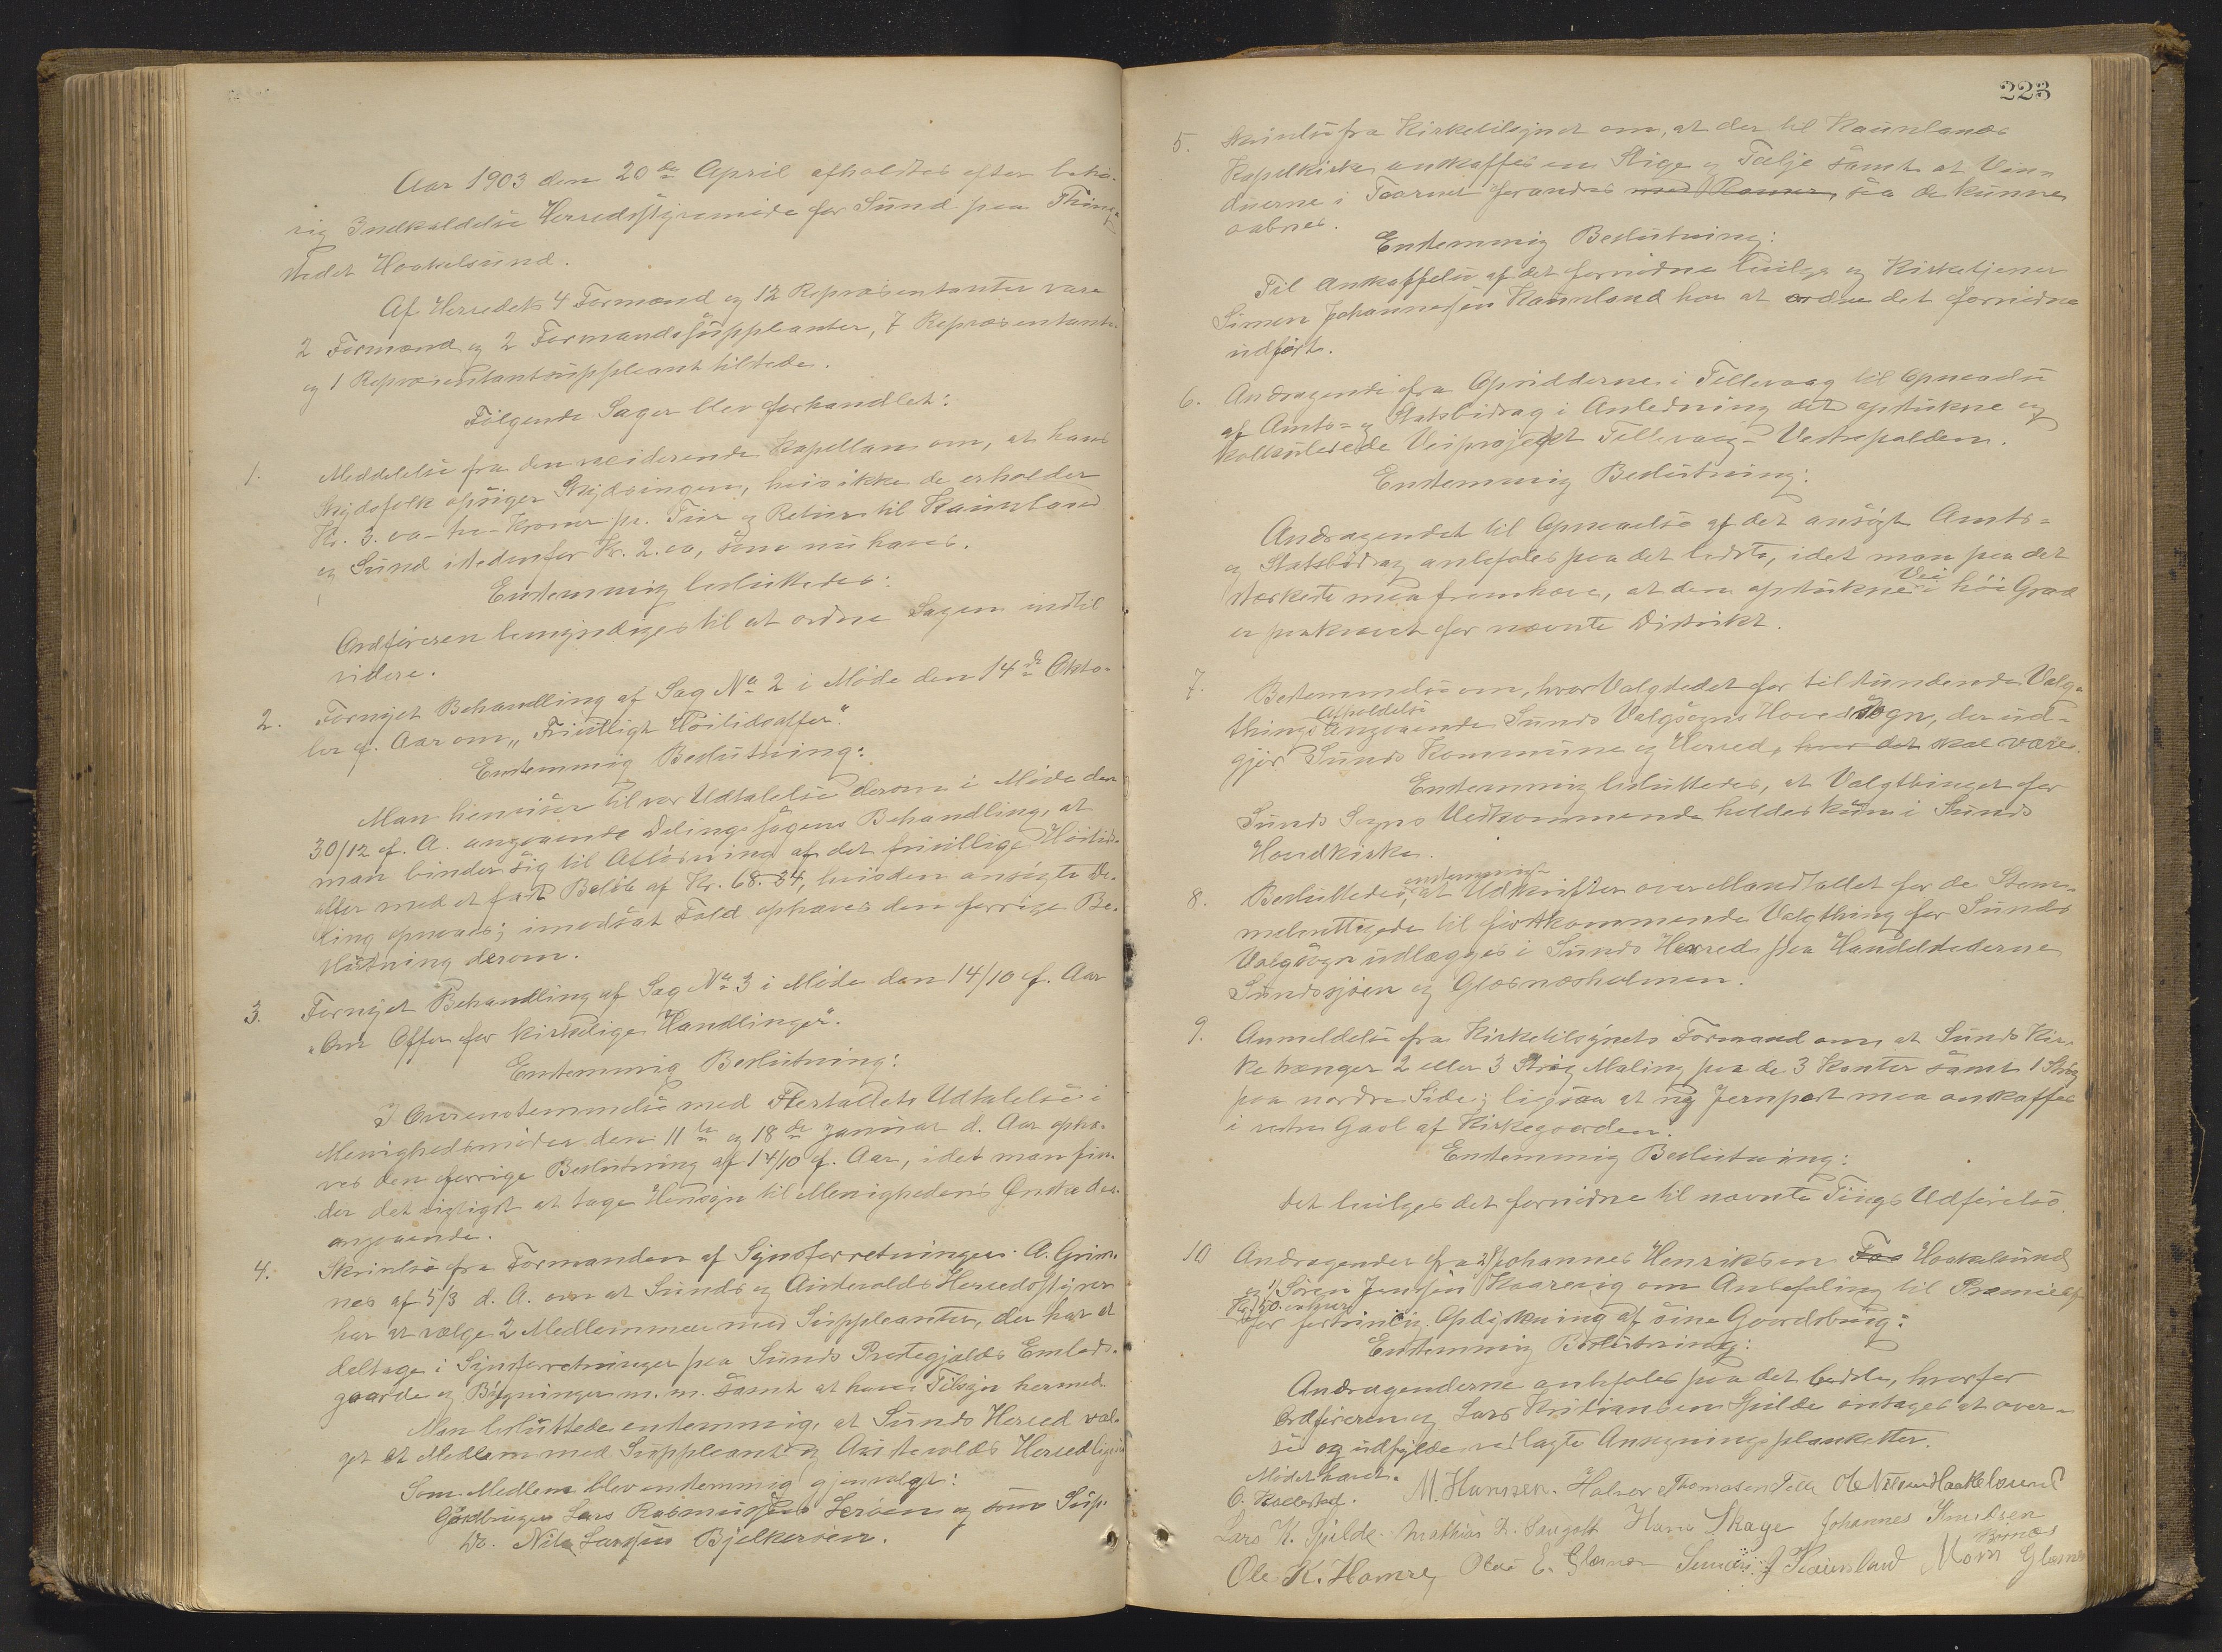 Aar 1903 den 20de April afholdtes efter behö-
rig Indkaldelse Herredsstyremöde for Sund paa Thing-
stedet Hookelsund.
Af Herredets 4 Formænd og 12 Repræsentanter vare
2 Formænd og 2 Formandssuppleanter, 7 Repræsentanter
og 1 Repræsentantsuppleant tilstede.
Fölgende Sager blev forhandlet:
1. Meddelelse fra den residerende Kapellan om, at hans
Skydsfolk opsiger Skydsingen, hvis ikke de erholder
Kr. 3.oo - tre - Kroner pr. Tur og Retur til Kaünland
og Sund istedenfor Kr. 2.oo, som nu haves.
Enstemmig besluttedes:
Ordföreren bemyndiges til at ordne Sagen indtil
videre.
2. Fornyet Behandling af Sag No 2 i Möde den 14de Okto-
ber f. Aar om "Frivilligt Höitidsoffer".
Enstemmig Beslutning:
Man henviser til vor Udtalelse derom i Möde den
30/12 f. A. angaaende Delingssagens Behandling, at
man binder sig til Aflösning af det frivillige Höitids-
offer med et fast Belöb af Kr. 68.34, hvis den ansögte De-
ling opnaaes; i modsat Fald ophæves den forrige Be-
slutning derom.
3. Fornyet Behandling af Sag No 3 i Möde den 14/10 f. Aar
"Om Offer for kirkelige Handlinger".
Enstemmig Beslutning:
I Overensstemmelse med Flertallets Udtalelse i
Menighedsmöder den 11te og 18de Januar d. Aar ophæ-
ves den forrige Beslutning af 14/10 f. Aar, idet man fin-
der det rigtigst at tage Hensyn til Menighedens Önske des-
angaaende.
4. Skrivelse fra Formanden af Synsforretninger A. Grim-
nes af 5/3 d. A. om at Sunds og Austevolds Herredsstyrer
har at vælge 2 Medlemmer med Suppleanter, der har at
deltage i Synsforretninger paa Sunds Prestegjælds Embeds-
gaarde og Bygninger m. m. samt at have Tilsyn hermed.
Man besluttede enstemmig, at Sunds Herred væl-
ger et Medlem med Suppleant og Austevolds Herred ligesaa
Som Medlem blev enstemmig gjenvalgt:
Gaardbruger Lars Rasmussen Leröen og som Sup.
Do. Nils Larssen Bjelkeröen.
223
5. Skrivelse fra Kirketilsynet om, at der til Kaünlands
Kapelkirke anskaffes en Stige og Talje samt at Vin-
duerne i Taarnet forandres med Rammer, saa de kunne
aabnes.
Enstemmig Beslutning:
Til Anskaffelse af det fornödne bevilges og Kirketjener
Simon Johannessen Kaünland har at ordne det fornödne
udfört.
6. Andragende fra Opsidderne i Tellevaag til Opnaaelse
af Amts- og Statsbidrag i Anledning det opstukne og
kalkulerede Veiprojekt Tellevaag - Vestrepolden.
Enstemmig Beslutning:
Andragendet til Opnaaelse af det ansögte Amts-
og Statsbidrag anbefales paa det bedste, idet man paa det
stærkeste maa fremhæve, at den opstukne Vei i höi Grad
er paakrævet for nævnte Distrikt.
7. Bestemmelse om, hvor Valgstedet for tilstundende Valg-
things Afholdelse angaaende Sunds Valgsogns Hovedsogn, der ud-
gjör Sunds Kommune og Herred, hvor det skal være.
Enstemmig besluttedes, at Valgthinget for
Sunds Sogns Vedkommende holdes kun i Sunds
Hovedkirke.
8. Besluttedes enstemmig, at Udskrifter over Mandtallet for de Stem-
meberettigede til förstkommende Valgthing for Sunds
Valgsogn udlægges i Sunds Herred paa Handelsstederne
Sundssjöen og Glæsnæsholmen.
9. Anmeldelse fra Kirketilsynets Formand om at Sunds Kir-
ke trænger 2 eller 3 Strög Maling paa de 3 Kanter samt 1 Strög
paa nordre Side; ligesaa at ny Jernport maa anskaffes
i vestre Gavl af Kirkegaarden.
Enstemmig Beslutning:
Det bevilges det fornödne til nævnte Tings Udförelse.
10 Andragender fra 2) Johannes Henriksen Fos Hookelsund
og 1) Sören Jenssen Kaarevig om Anbefaling til Præmie af
Kr. 150.
for fortrinlig Opdyrkning af sine Gaardsbrug:
Enstemmig Beslutning:
Andragenderne anbefales paa det bedste, hvorfor
Ordföreren og Lars Kristiansen Spilde antages at over-
se og udfylde vedlagte Ansögningsplanketter.
Mödet hævet.
O. Kallestad. M. Hanssen. Halvor Thomasen Telle Ole Nilsen Haakelsund
Lars K. Spilde. Mathias L. Hans Skage Johannes Knudsen
Ole K. Hamre, Olai E. Glæsnes Simon J Kaünland Mons Glæsnes